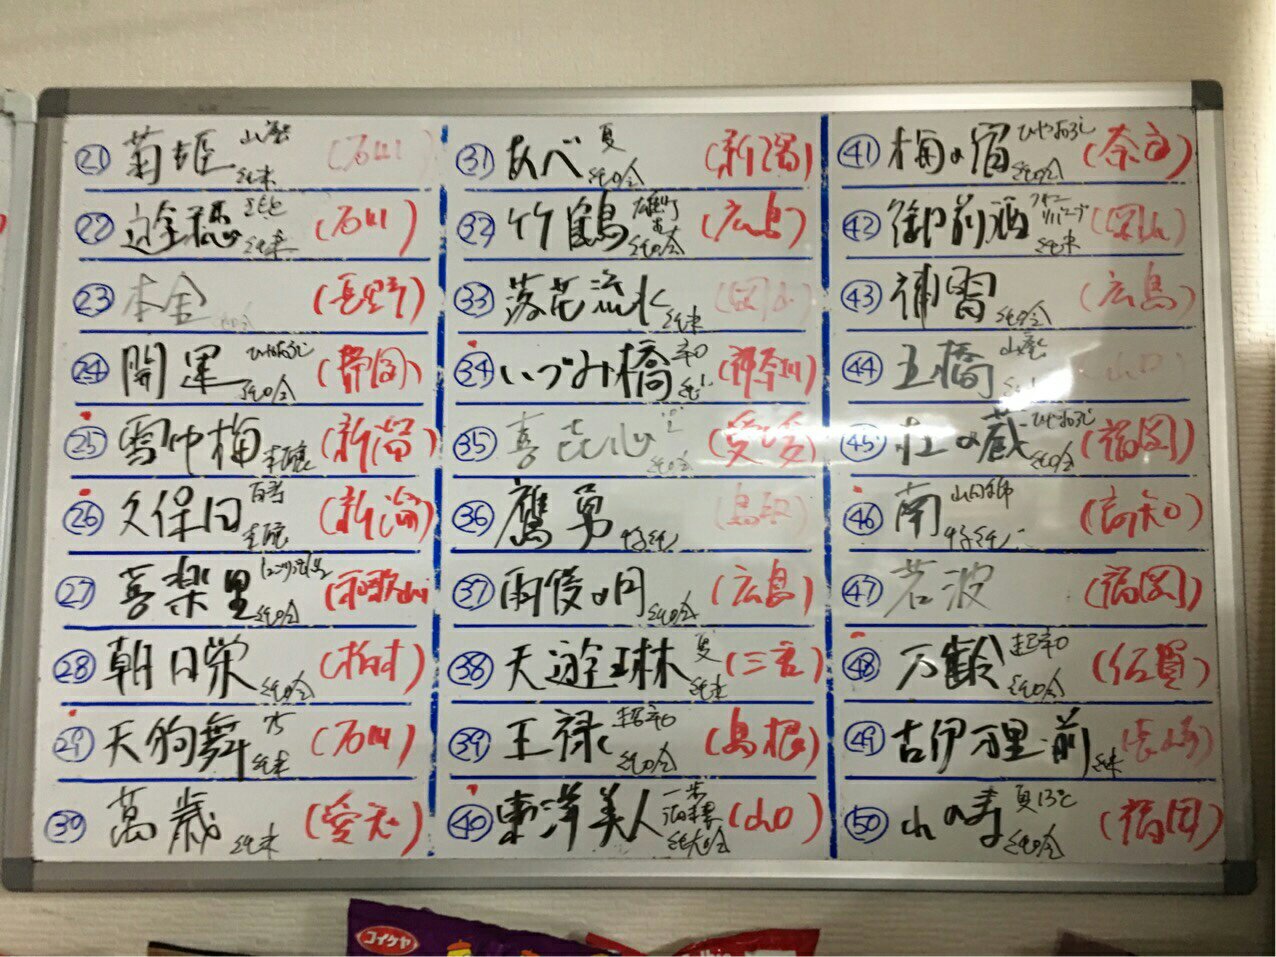 ㉑ 菊姫 山廃 純米 (石川)
㉒ 遊穂 純米 (石川)
㉓ 本金 (長野)
㉔ 開運 ひやおろし 純吟 (静岡)
㉕ 雪中梅 本醸 (新潟)
㉖ 久保田 百寿 本醸 (新潟)
㉗ 喜楽里 純吟 (和歌山)
㉘ 朝日栄 純吟 (栃木)
㉙ 天狗舞 純米 (石川)
㉚ 萬歳 純米 (愛知)
㉛ あべ 夏 純吟 (新潟)
㉜ 竹鶴 雄町 純吟 (広島)
㉝ 落花流水 純米
㉞ いづみ橋 (神奈川)
㉟ 喜七心 純吟 (愛媛)
㊱ 鷹勇 特純 (鳥取)
㊲ 雨後の月 純吟 (広島)
㊳ 天遊琳 夏 純米 (三重)
㊴ 王祿 超辛口 純吟 (島根)
㊵ 東洋美人 一歩 純大吟 (山口)
㊶ 梅の宿 ひやおろし 純吟 (奈良)
㊷ 御前酒 リバーブ 純米 (岡山)
㊸ 補習 純吟 (広島)
㊹ 五橋 山廃 (山口)
㊺ 杜の蔵 ひやおろし 純吟 (福岡)
㊻ 南 特純 (高知)
㊼ 若波 (福岡)
㊽ 万齢 超辛口 純吟 (佐賀)
㊾ 古伊万里 前 純米 (長崎)
㊿ 山の寿 夏13℃ 純吟 (福岡)
コイケヤ